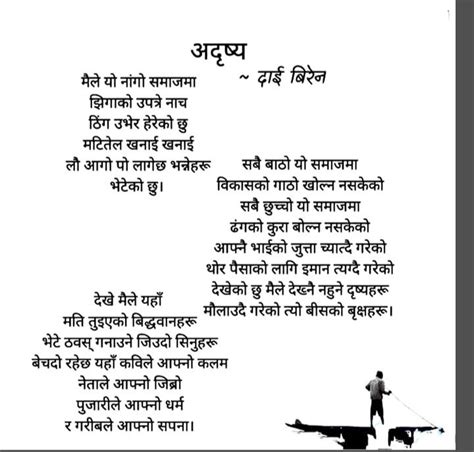 अदृष्य
~ दाई बिरेन
मैले यो नांगो समाजमा
झिगाको उपत्रे नाच
ठिंग उभेर हेरेको छु
मटितेल खनाई खनाई
लौ आगो पो लागेछ भन्नेहरू
भेटेको छु।
सबै बाठो यो समाजमा
विकासको गाठो खोल्न नसकेको
सबै छुच्चो यो समाजमा
ढंगको कुरा बोल्न नसकेको
आफ्नै भाईको जुत्ता च्यात्दै गरेको
थोर पैसाको लागि इमान त्यग्दै गरेको
देखेको छु मैले देख्नै नहुने दृष्यहरू
मौलाउदै गरेको त्यो बीसको बृक्षहरू।
देखे मैले यहाँ
मति तुइएको बिद्धवानहरू
भेटे ठवस् गनाउने जिउदो सिनुहरू
बेचदो रहेछ यहाँ कविले आफ्नो कलम
नेताले आफ्नो जिब्रो
पुजारीले आफ्नो धर्म
र गरीबले आफ्नो सपना।